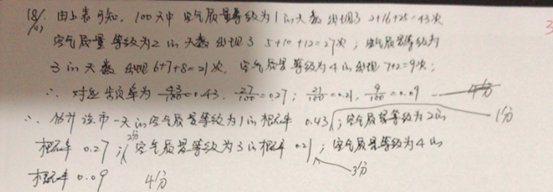 18/. 由上表可知, 100天中 空气质量等级为1的天数 出现了 2+16+25=43次
(1) 空气质量 等级为2 的 天数 出现了 5+10+12=27次; 空气质量等级为
3 的天数 出现 6+7+8=21次, 空气质量等级为4的出现 7+2=9次;
∴ 对应频率为 43/100=0.43, 27/100=0.27; 21/100=0.21, 9/100=0.09 4分
∴ 估计该市一天的空气质量等级为1的概率 0.43; 空气质量等级为2的 1分
概率 0.27; 2分 空气质量等级为3的概率 0.21; 空气质量等级为4的
概率 0.09 4分 3分
3